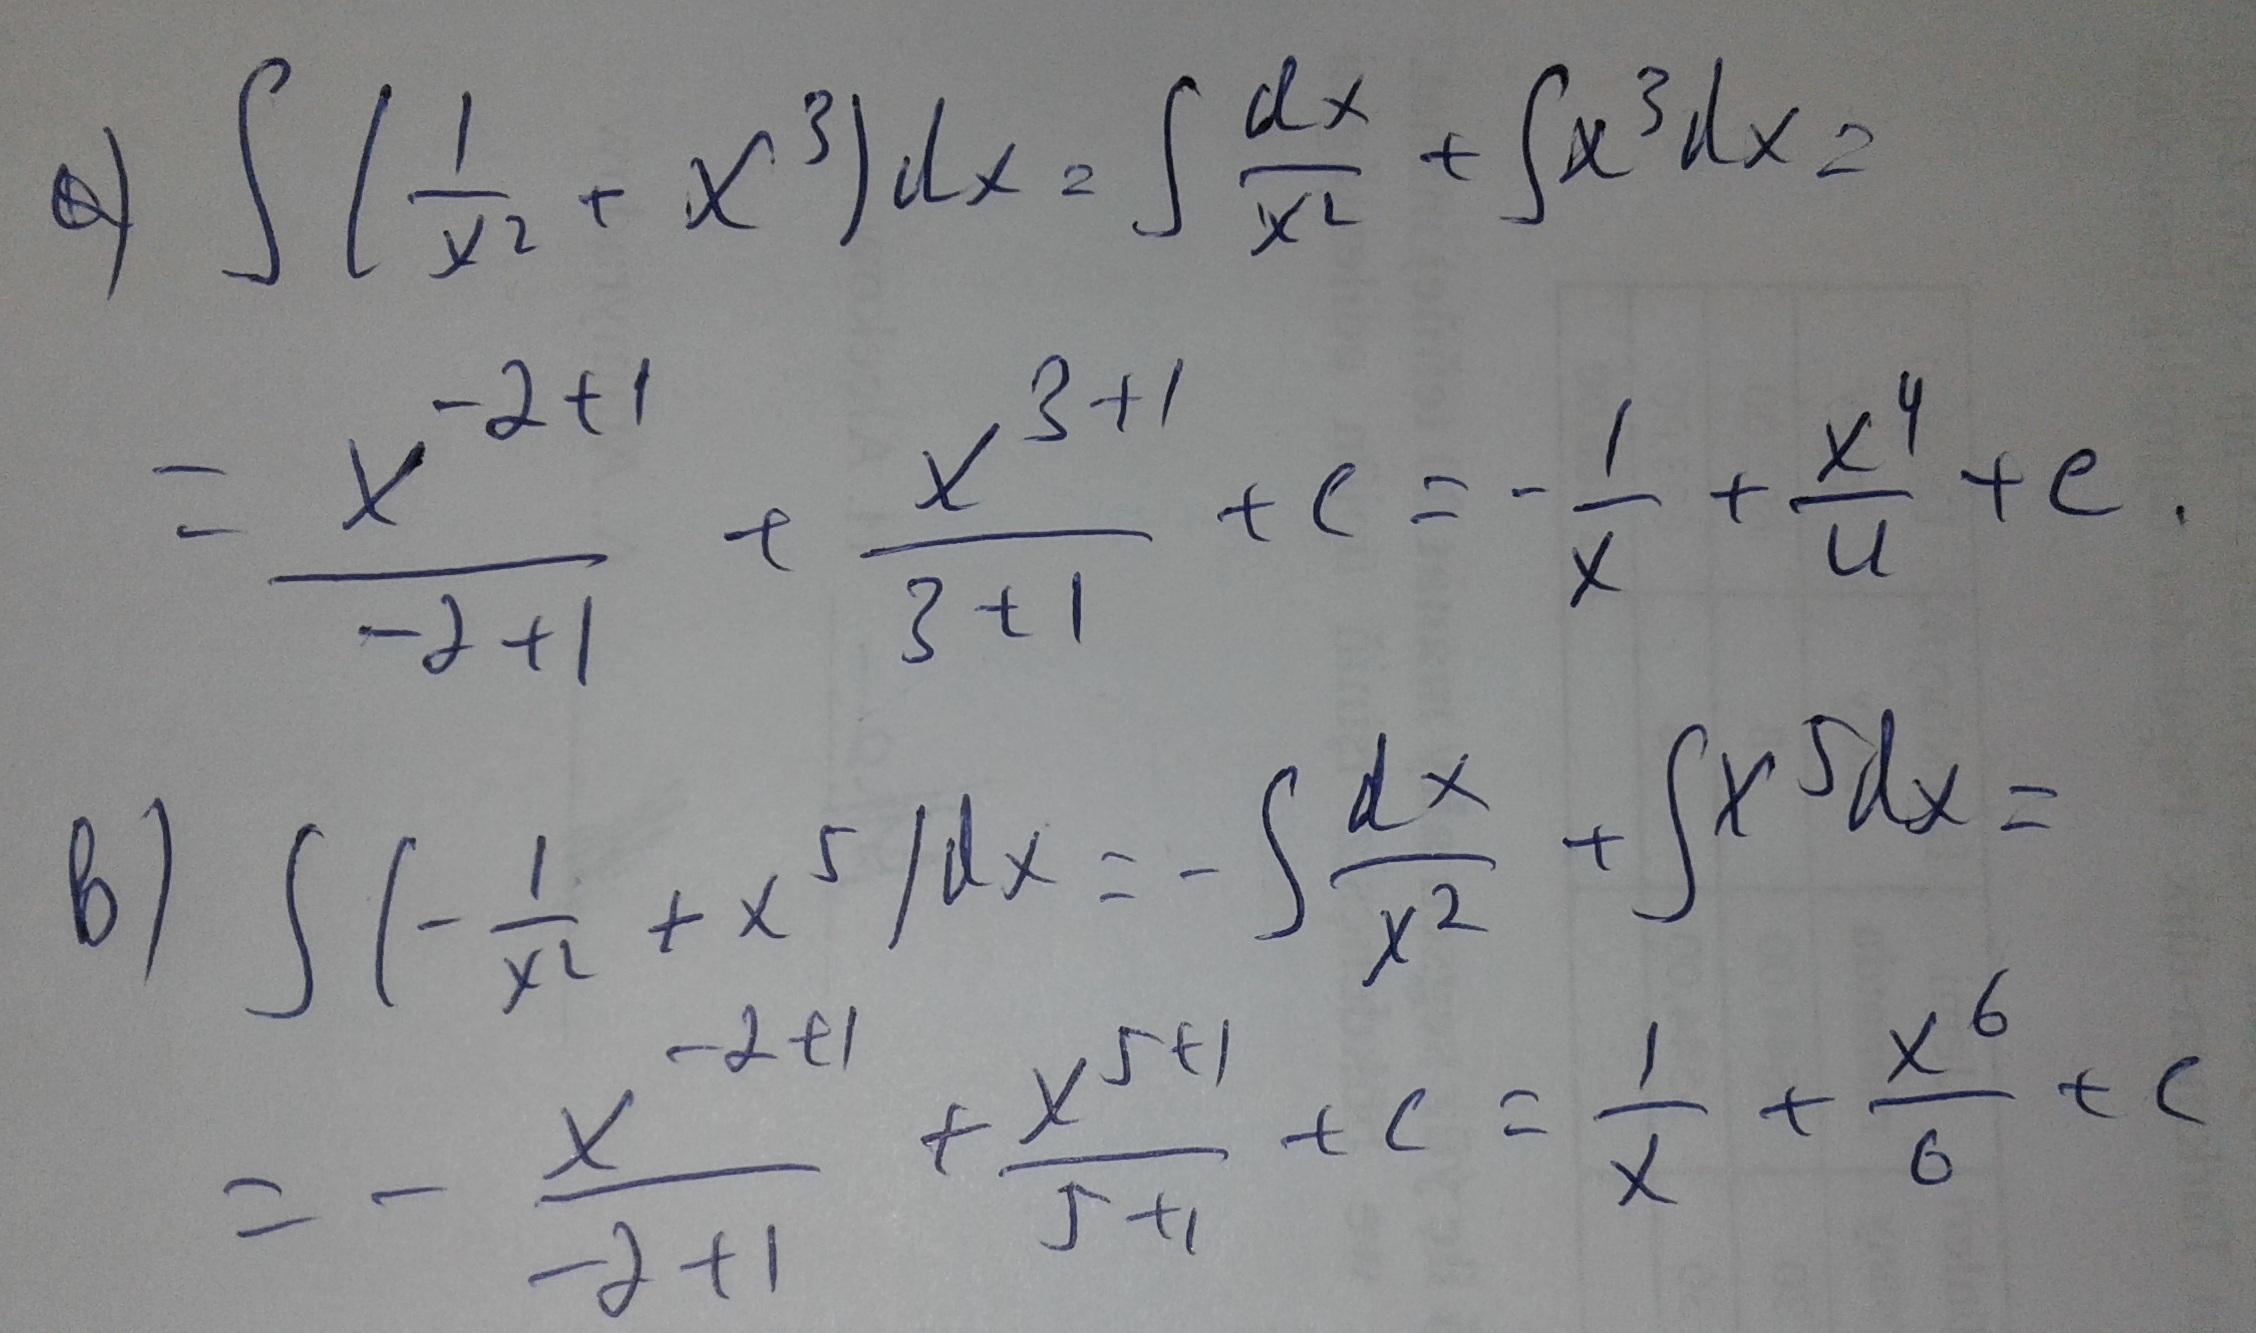 a) ∫ (1/x² + x³) dx = ∫ dx/x² + ∫ x³ dx =
= x^(-2+1)/(-2+1) + x^(3+1)/(3+1) + c = - 1/x + x⁴/4 + c.
в) ∫ (- 1/x² + x⁵) dx = - ∫ dx/x² + ∫ x⁵ dx =
= - x^(-2+1)/(-2+1) + x^(5+1)/(5+1) + c = 1/x + x⁶/6 + c